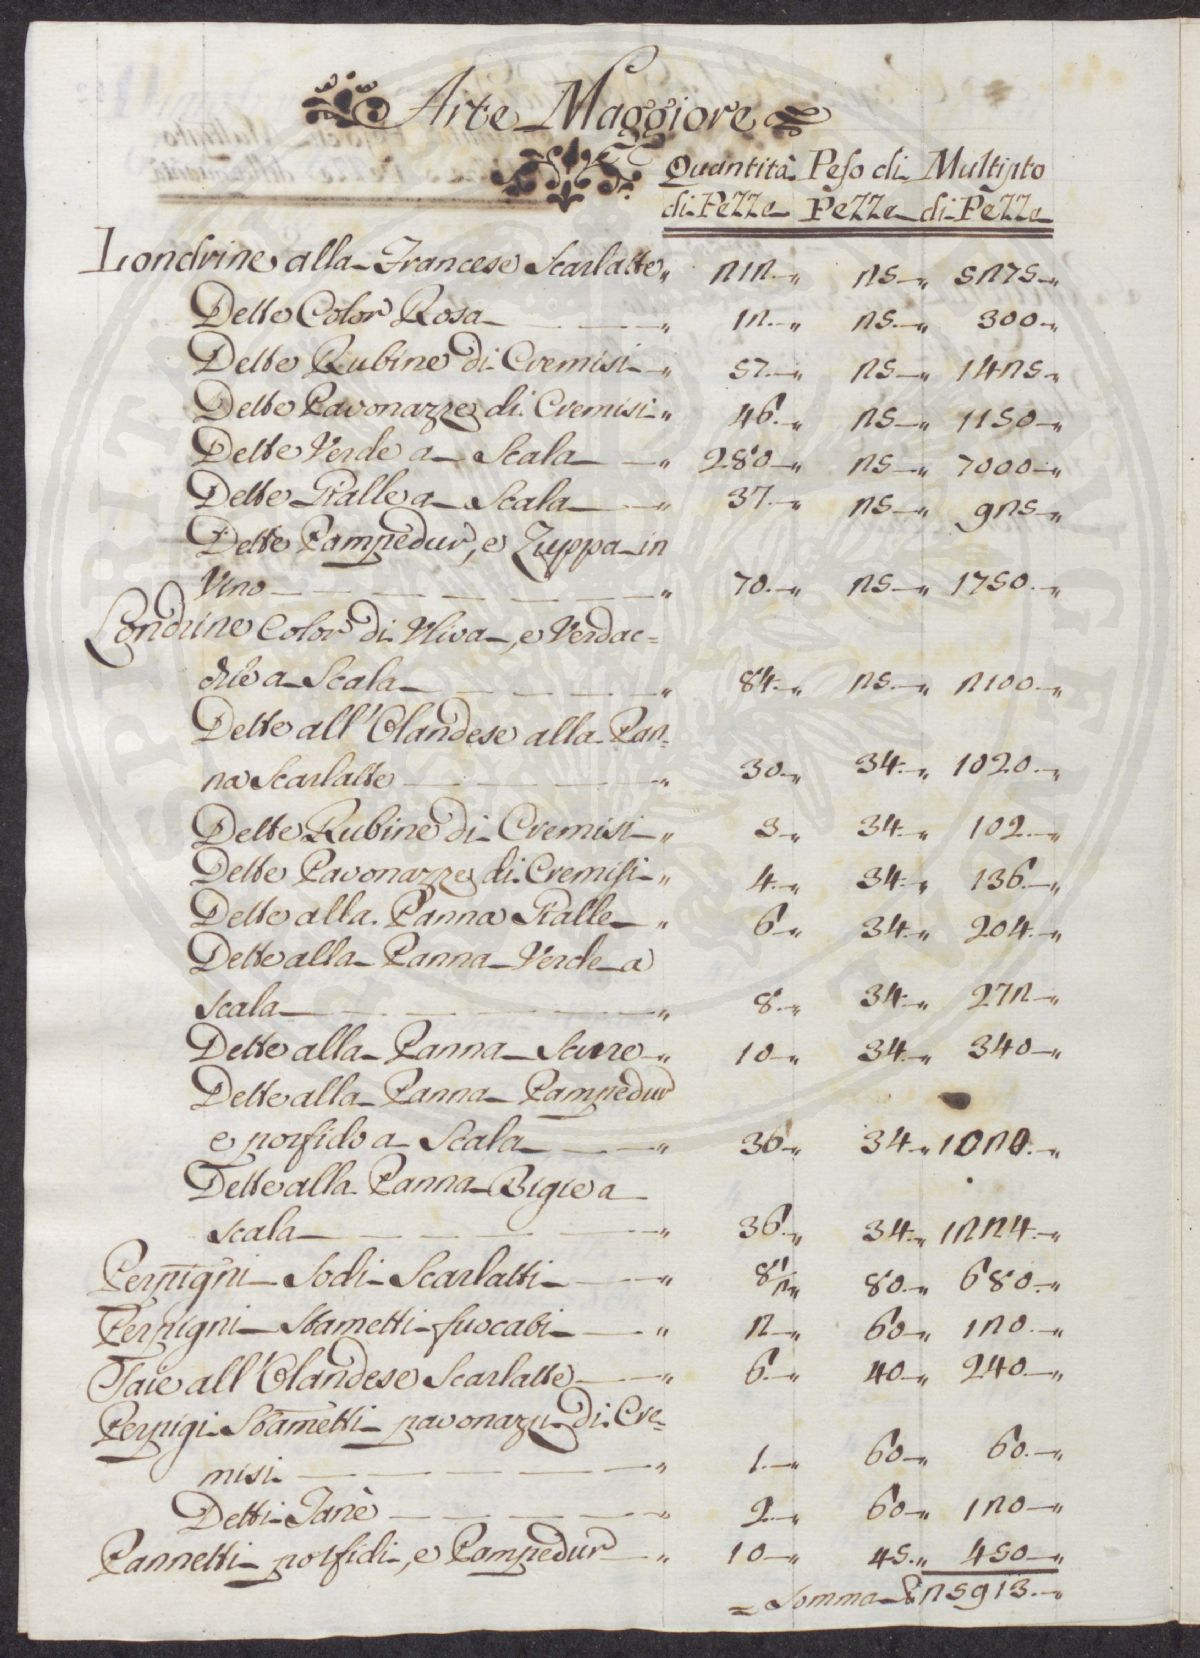 Arte Maggiore
Quantità Peso di Multipto
di Pezze Pezze di Pezze
Londrine alla Francese Scarlatte " 212 " 25 " 5275 "
Dette Color Rosa " 12 " 25 " 300 "
Dette Rubine di Cremisi " 57 " 25 " 1425 "
Dette Pavonazze di Cremisi " 46 " 25 " 1150 "
Dette Verde a Scala " 280 " 25 " 7000 "
Dette Gialle a Scala " 37 " 25 " 925 "
Dette Pampedur, e Zuppa in
Vino " 70 " 25 " 1750 "
Londrine Color di Uliva, e Verdac=
chie a Scala " 84 " 25 " 2100 "
Dette all'Olandese alla Pan=
na Scarlatte " 30 " 34 " 1020 "
Dette Rubine di Cremisi " 3 " 34 " 102 "
Dette Pavonazze di Cremisi " 4 " 34 " 136 "
Dette alla Panna Gialle " 6 " 34 " 204 "
Dette alla Panna Verde a
scala " 8 " 34 " 272 "
Dette alla Panna Scure " 10 " 34 " 340 "
Dette alla Panna Pampedur
e porfido a Scala " 30 " 34 " 1020 "
Dette alla Panna Bigie a
scala " 36 " 34 " 1224 "
Perpigni Sodi Scarlatti " 8 1/2 " 80 " 680 "
Perpigni Stametti fuocati " 2 " 60 " 120 "
Saie all'Olandese Scarlatte " 6 " 40 " 240 "
Perpigi Stametti pavonazzi di Cre=
misi " 1 " 60 " 60 "
Detti Tanè " 2 " 60 " 120 "
Pannetti porfidi, e Pampedur " 10 " 45 " 450 "
= Somma 25913 "